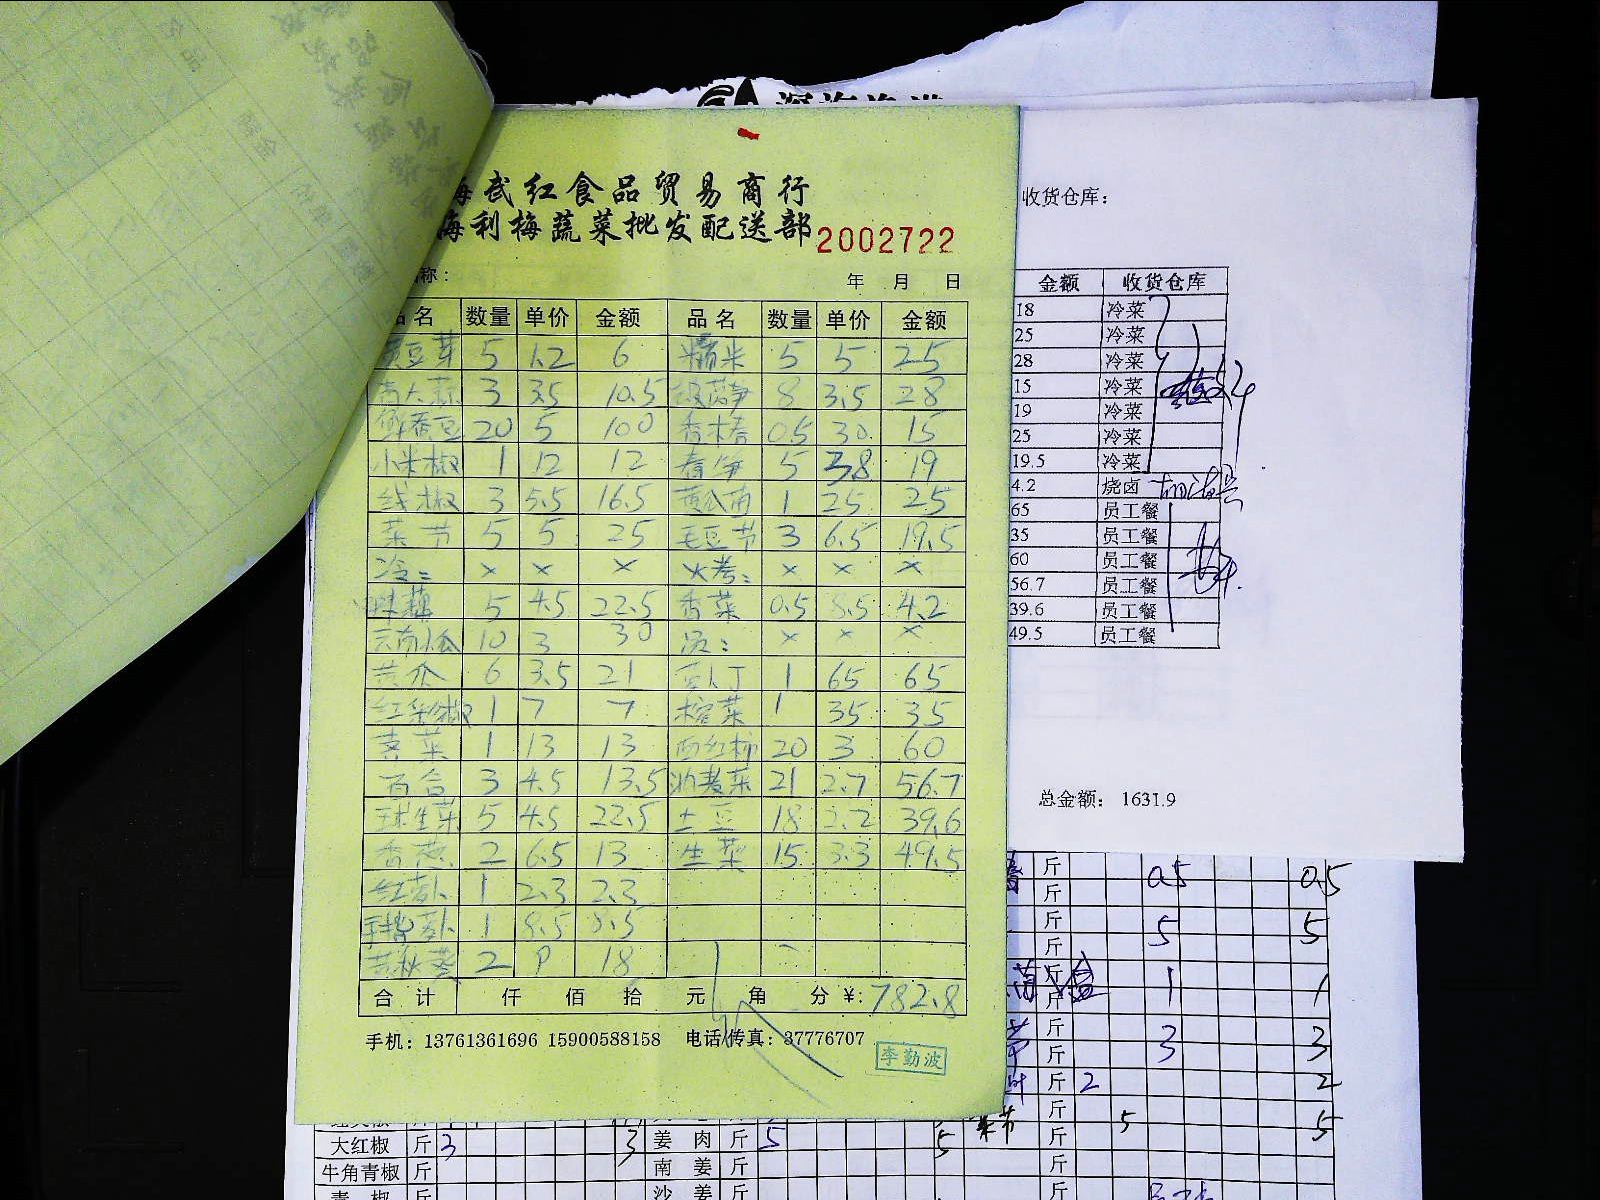 武红食品贸易商行
海利梅蔬菜批发配送部
2002722
称：
年 月 日
品名 数量 单价 金额 品名 数量 单价 金额
黄豆芽 5 1.2 6 糯米 5 5 25
青大蒜 3 3.5 10.5 8 3.5 28
鲜蚕豆 20 5 100 香椿 0.5 30 15
小米椒 1 12 12 春笋 5 3.8 19
线椒 3 5.5 16.5 黄瓜 1 25 25
菜节 5 5 25 毛豆节 3 6.5 19.5
冷: × × × × × ×
藕 5 4.5 22.5 香菜 0.5 8.5 4.2
云南小瓜 10 3 30 × × ×
6 3.5 21 1 65 65
红彩椒 1 7 7 榨菜 1 35 35
1 13 13 西红柿 20 3 60
百合 3 4.5 13.5 油麦菜 21 2.7 56.7
球生菜 5 4.5 22.5 土豆 18 2.2 39.6
香葱 2 6.5 13 生菜 15 3.3 49.5
红萝卜 1 2.3 2.3
萝卜 1 8.5 8.5
黄秋葵 2 9 18
合计 仟 佰 拾 元 角 分 ¥: 782.8
手机：13761361696 15900588158 电话/传真：37776707
李勤波
收货仓库：
金额 收货仓库
18 冷菜
25 冷菜
28 冷菜
15 冷菜
19 冷菜
25 冷菜
19.5 冷菜
4.2 烧卤
65 员工餐
35 员工餐
60 员工餐
56.7 员工餐
39.6 员工餐
49.5 员工餐
总金额： 1631.9
斤 0.5 0.5
斤
斤 5 5
斤
斤 1 1
斤
斤 3 3
斤
斤 2 2
菜节 斤 5 5
大红椒 斤 3 3 姜肉 斤 5 5 斤
牛角青椒 斤 南姜 斤 斤
青椒 斤 沙姜 斤 斤